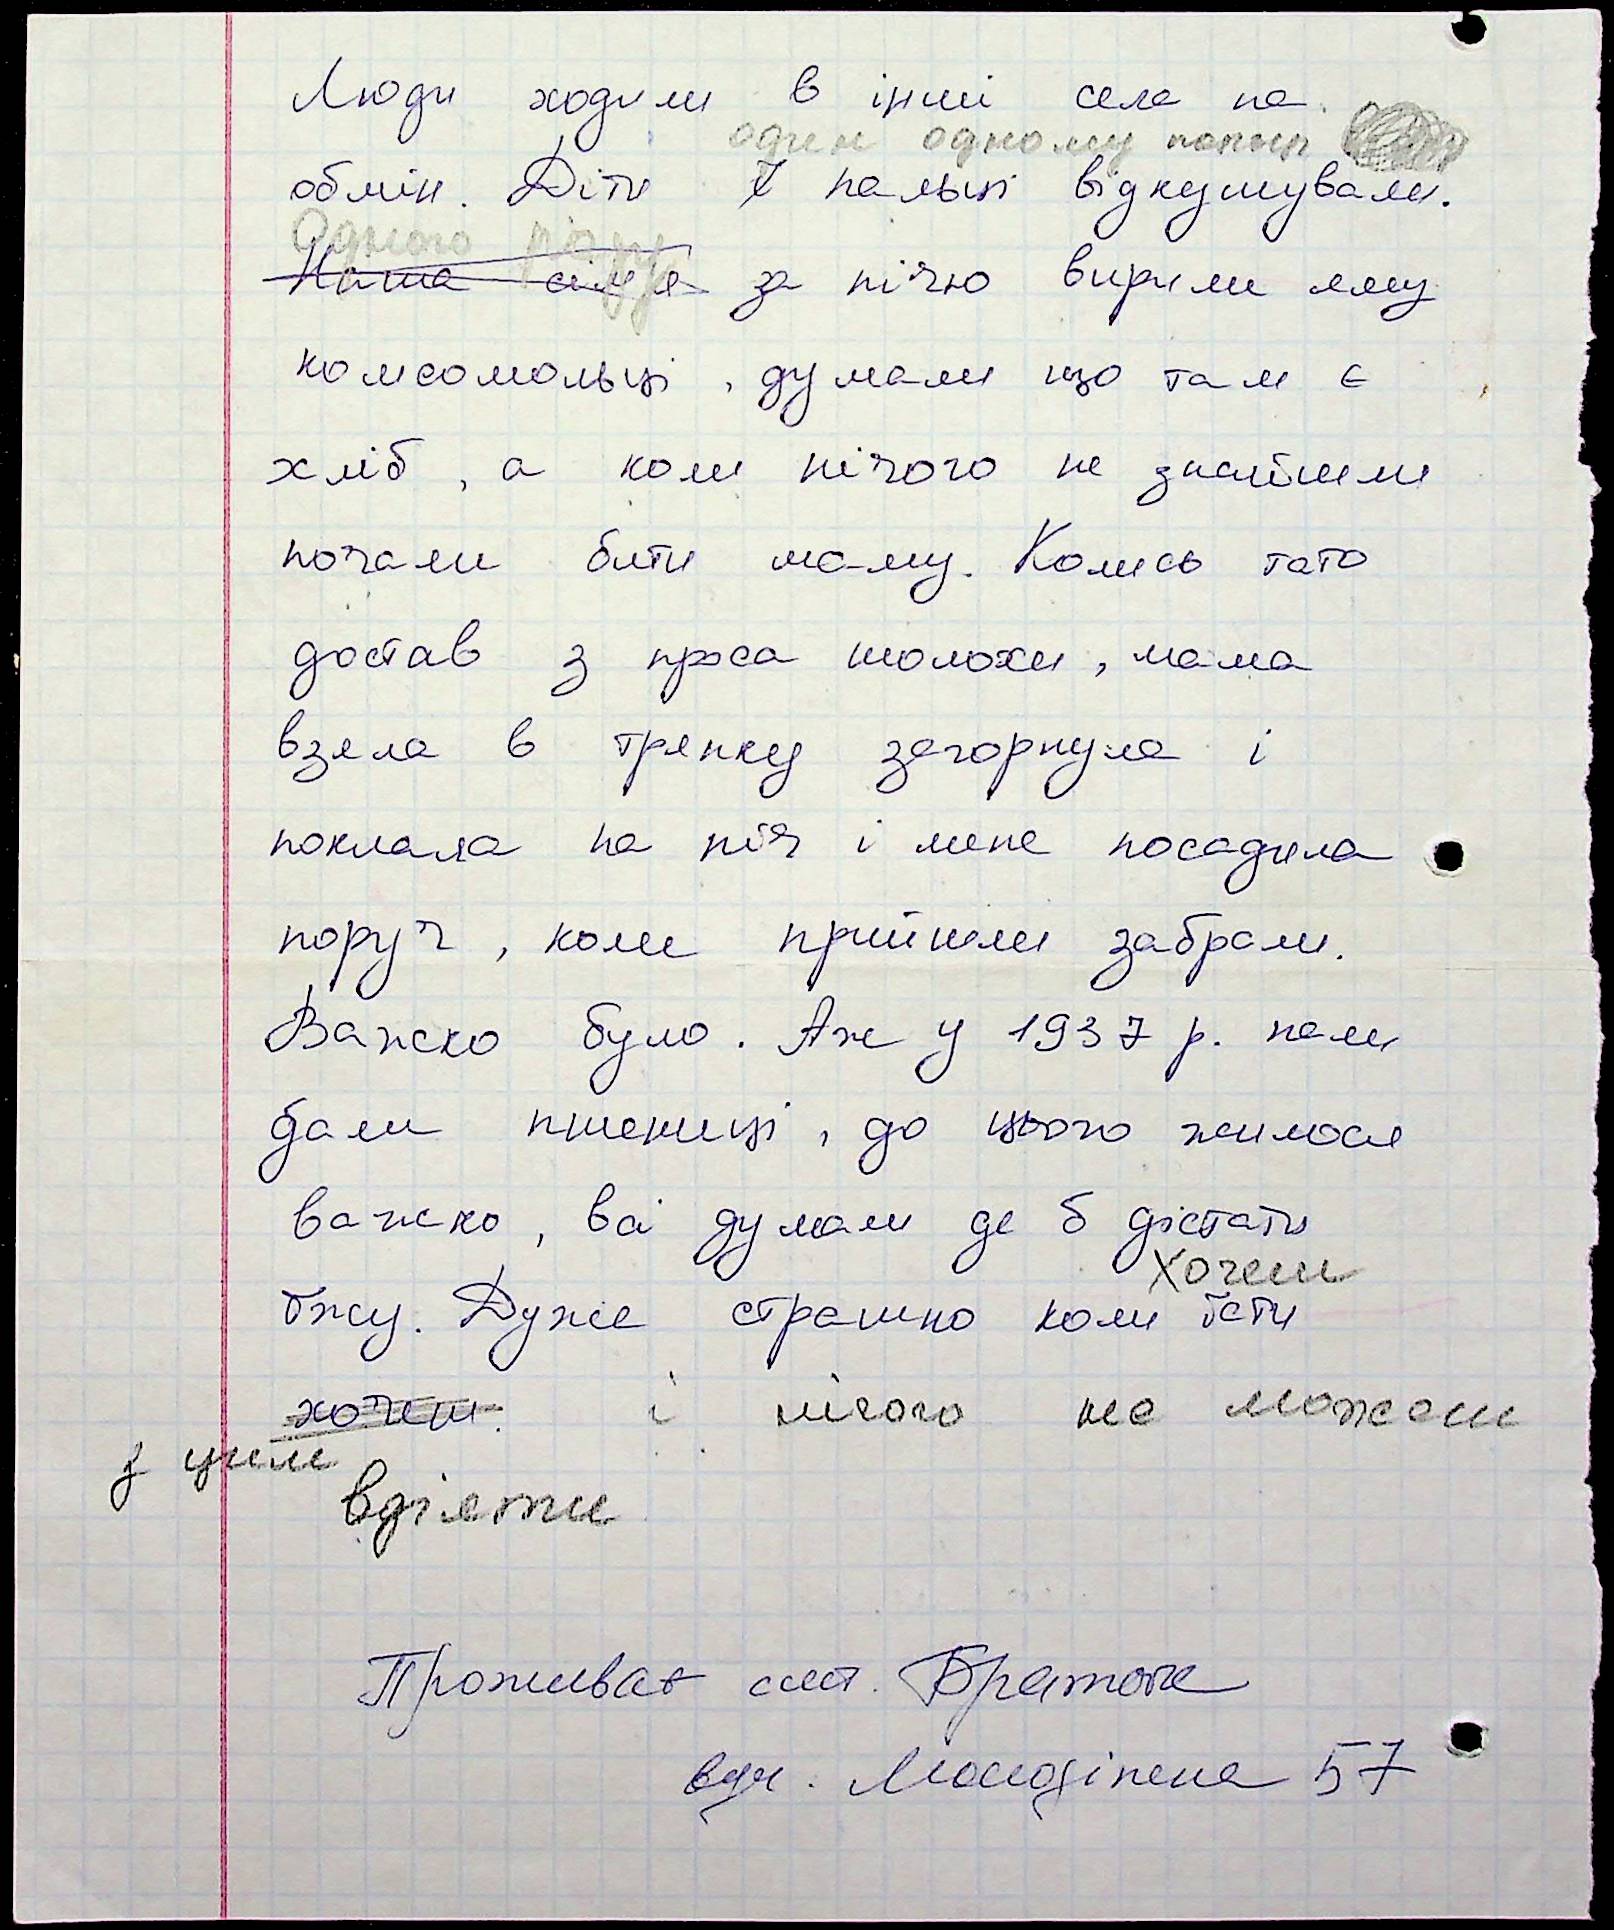 Люди ходили в інші села на
один одному
обмін. Діти пальці відкушували.
Одного разу
Наша сім'я за пічю вирили яму
комсомольці, думали що там є
хліб, а коли нічого не знайшли
почали бити маму. Колись тато
достав з проса шолохи, мама
взяла в тряпку загорнула і
поклала на піч і мене посадила
поруч, коли прийшли забрали.
Важко було. Аж у 1937 р. нам
дали пшениці, до цього жилося
важко, всі думали де б дістати
хочеш
їжу. Дуже страшно коли їсти
хочеш. і нічого не можеш
з цим
вдіяти
Проживає смт. Братське
вул. Молодіжна 57